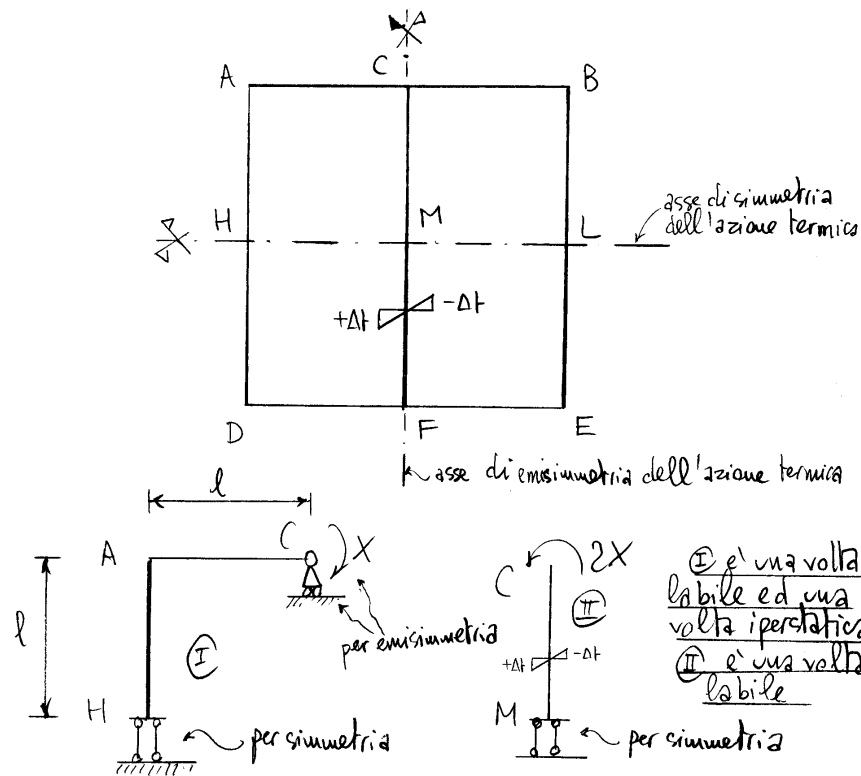 C
A
B
H
M
L
asse di simmetria
dell'azione termica
+Δt
-Δt
D
F
E
asse di emisimmetria dell'azione termica
l
A
C
X
l
I
per emisimmetria
H
per simmetria
C
2X
II
+Δt
-Δt
M
per simmetria
I è una volta
labile ed una
volta iperstatica
II è una volta
labile